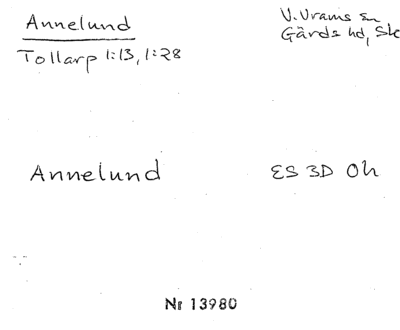 Annelund
V. Vrams sn
Tollarp 1:13, 1:28
Gärds hd, Sk
Annelund
ES 3D Oh
Nr 13980